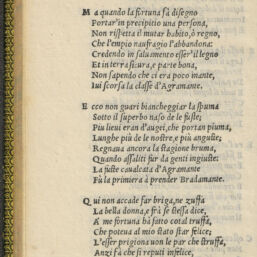 Ma quando la fortuna fà disegno
Portar'in precipitio una persona,
Non rispetta il mutar habito, ò regno,
Che l'empio naufragio l'abbandona:
Credendo in saluamento esser'il legno
Et in terra sicura, e parte bona,
Non sapendo che ci era poco inante,
Iui scorsa la classe d'Agramante.
Ecco non guari biancheggiar la spuma
Sotto il superbo naso de le fuste;
Piu lieui eran d'augei, che portan piuma,
Lunghe più de le nostre, e più anguste;
Regnaua ancora la stagione bruma,
Quando assaliti fur da genti ingiuste:
La fusta caualcata d'Agramante
Fù la primiera à prender Bradamante.
Qui non accade far briga, ne zuffa
La bella donna, e frà se stessa dice,
A me fortuna ha fatto cotal truffa,
Che poteua al mio stato star felice;
L'esser prigiona non le par che struffa,
Anzi fà che si reputi infelice,